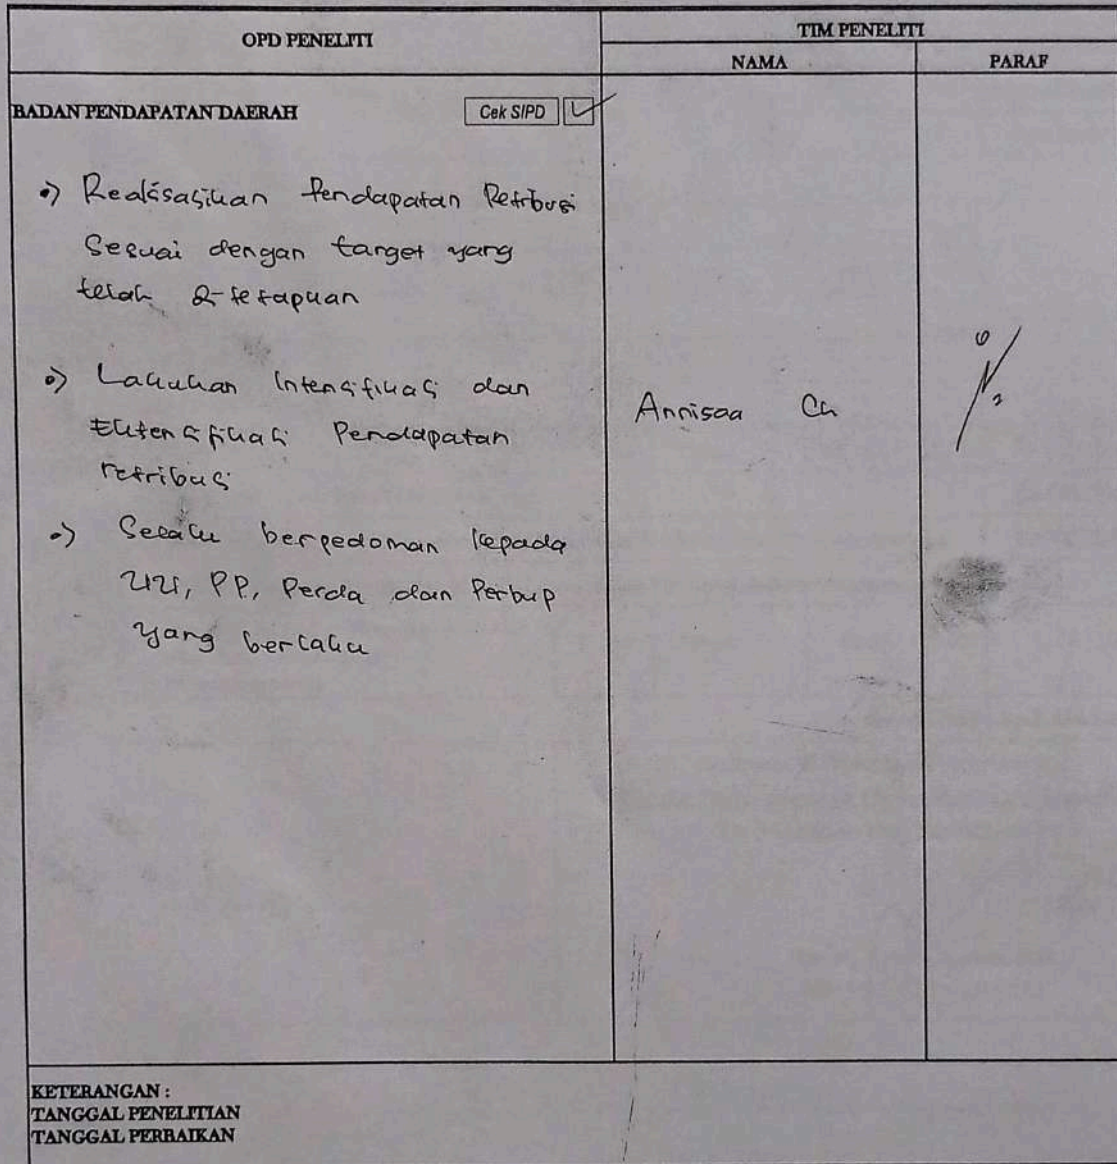 OPD PENELITI
TIM PENELITI
NAMA
PARAF
BADAN PENDAPATAN DAERAH
Cek SIPD
•) Realisasikan Pendapatan Retribusi
Sesuai dengan target yang
telah di-tetapkan
•) Lakukan Intensifikasi dan
Ekstensifikasi Pendapatan
retribusi
Annisaa Ch
•) Selalu berpedoman kepada
UU, PP, Perda dan Perbup
yang berlaku
KETERANGAN :
TANGGAL PENELITIAN
TANGGAL PERBAIKAN